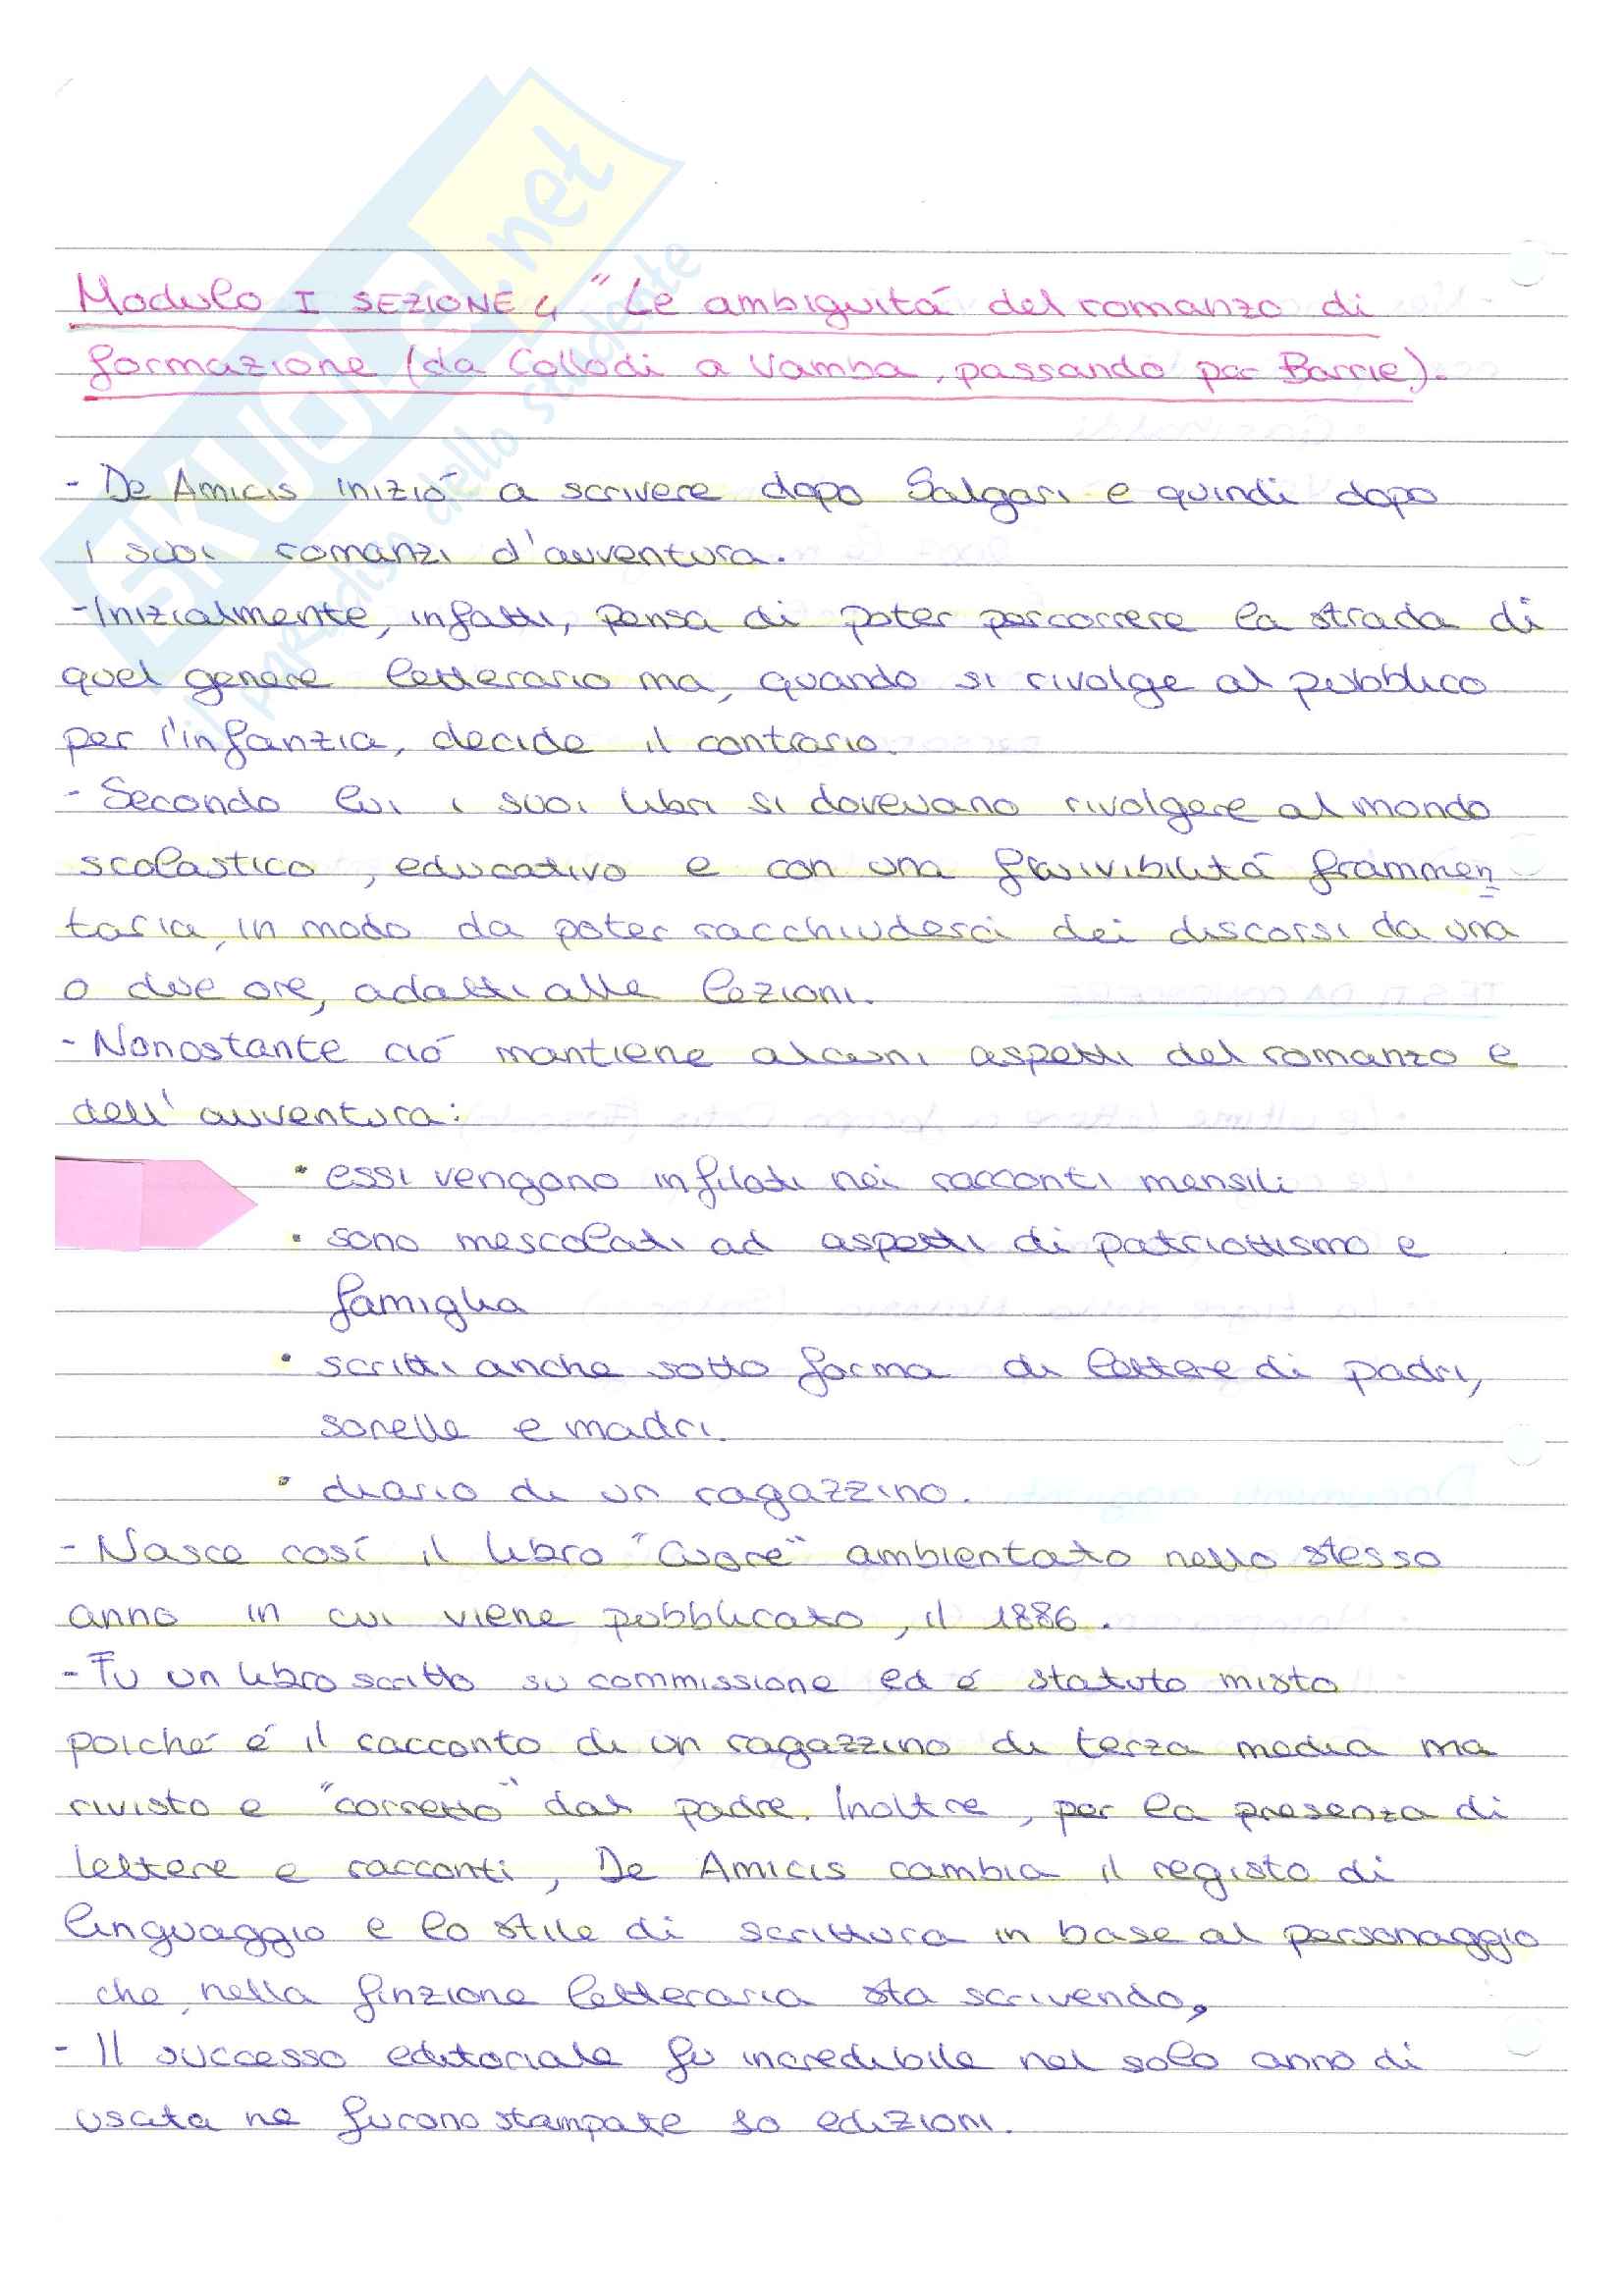 SKUOLA.net
il paradiso dello studente
Modulo I SEZIONE 4 "Le ambiguità del romanzo di
formazione (da Collodi a Vamba, passando per Barrie).
- De Amicis iniziò a scrivere dopo Salgari e quindi dopo
i suoi romanzi d'avventura.
- Inizialmente, infatti, pensa di poter percorrere la strada di
quel genere letterario ma, quando si rivolge al pubblico
per l'infanzia, decide il contrario.
- Secondo lui i suoi libri si dovevano rivolgere al mondo
scolastico, educativo e con una frammen
taria, in modo da poter racchiuderci dei discorsi da una
o due ore, adatti alle lezioni.
- Nonostante ciò mantiene alcuni aspetti del romanzo e
dell'avventura:
• essi vengono infilati nei racconti mensili
• sono mescolati ad aspetti di patriottismo e
famiglia
• scritti anche sotto forma di lettere di padri,
sorelle e madri.
• diario di un ragazzino.
- Nasce così il libro "Cuore" ambientato nello stesso
anno in cui viene pubblicato, il 1886.
- Fu un libro scritto su commissione ed è statuto misto
poiché è il racconto di un ragazzino di terza media ma
rivisto e "corretto" dal padre. Inoltre, per la presenza di
lettere e racconti, De Amicis cambia il registo di
linguaggio e lo stile di scrittura in base al personaggio
che, nella finzione letteraria sta scrivendo.
- Il successo editoriale fu incredibile nel solo anno di
uscita ne furono stampate edizioni.